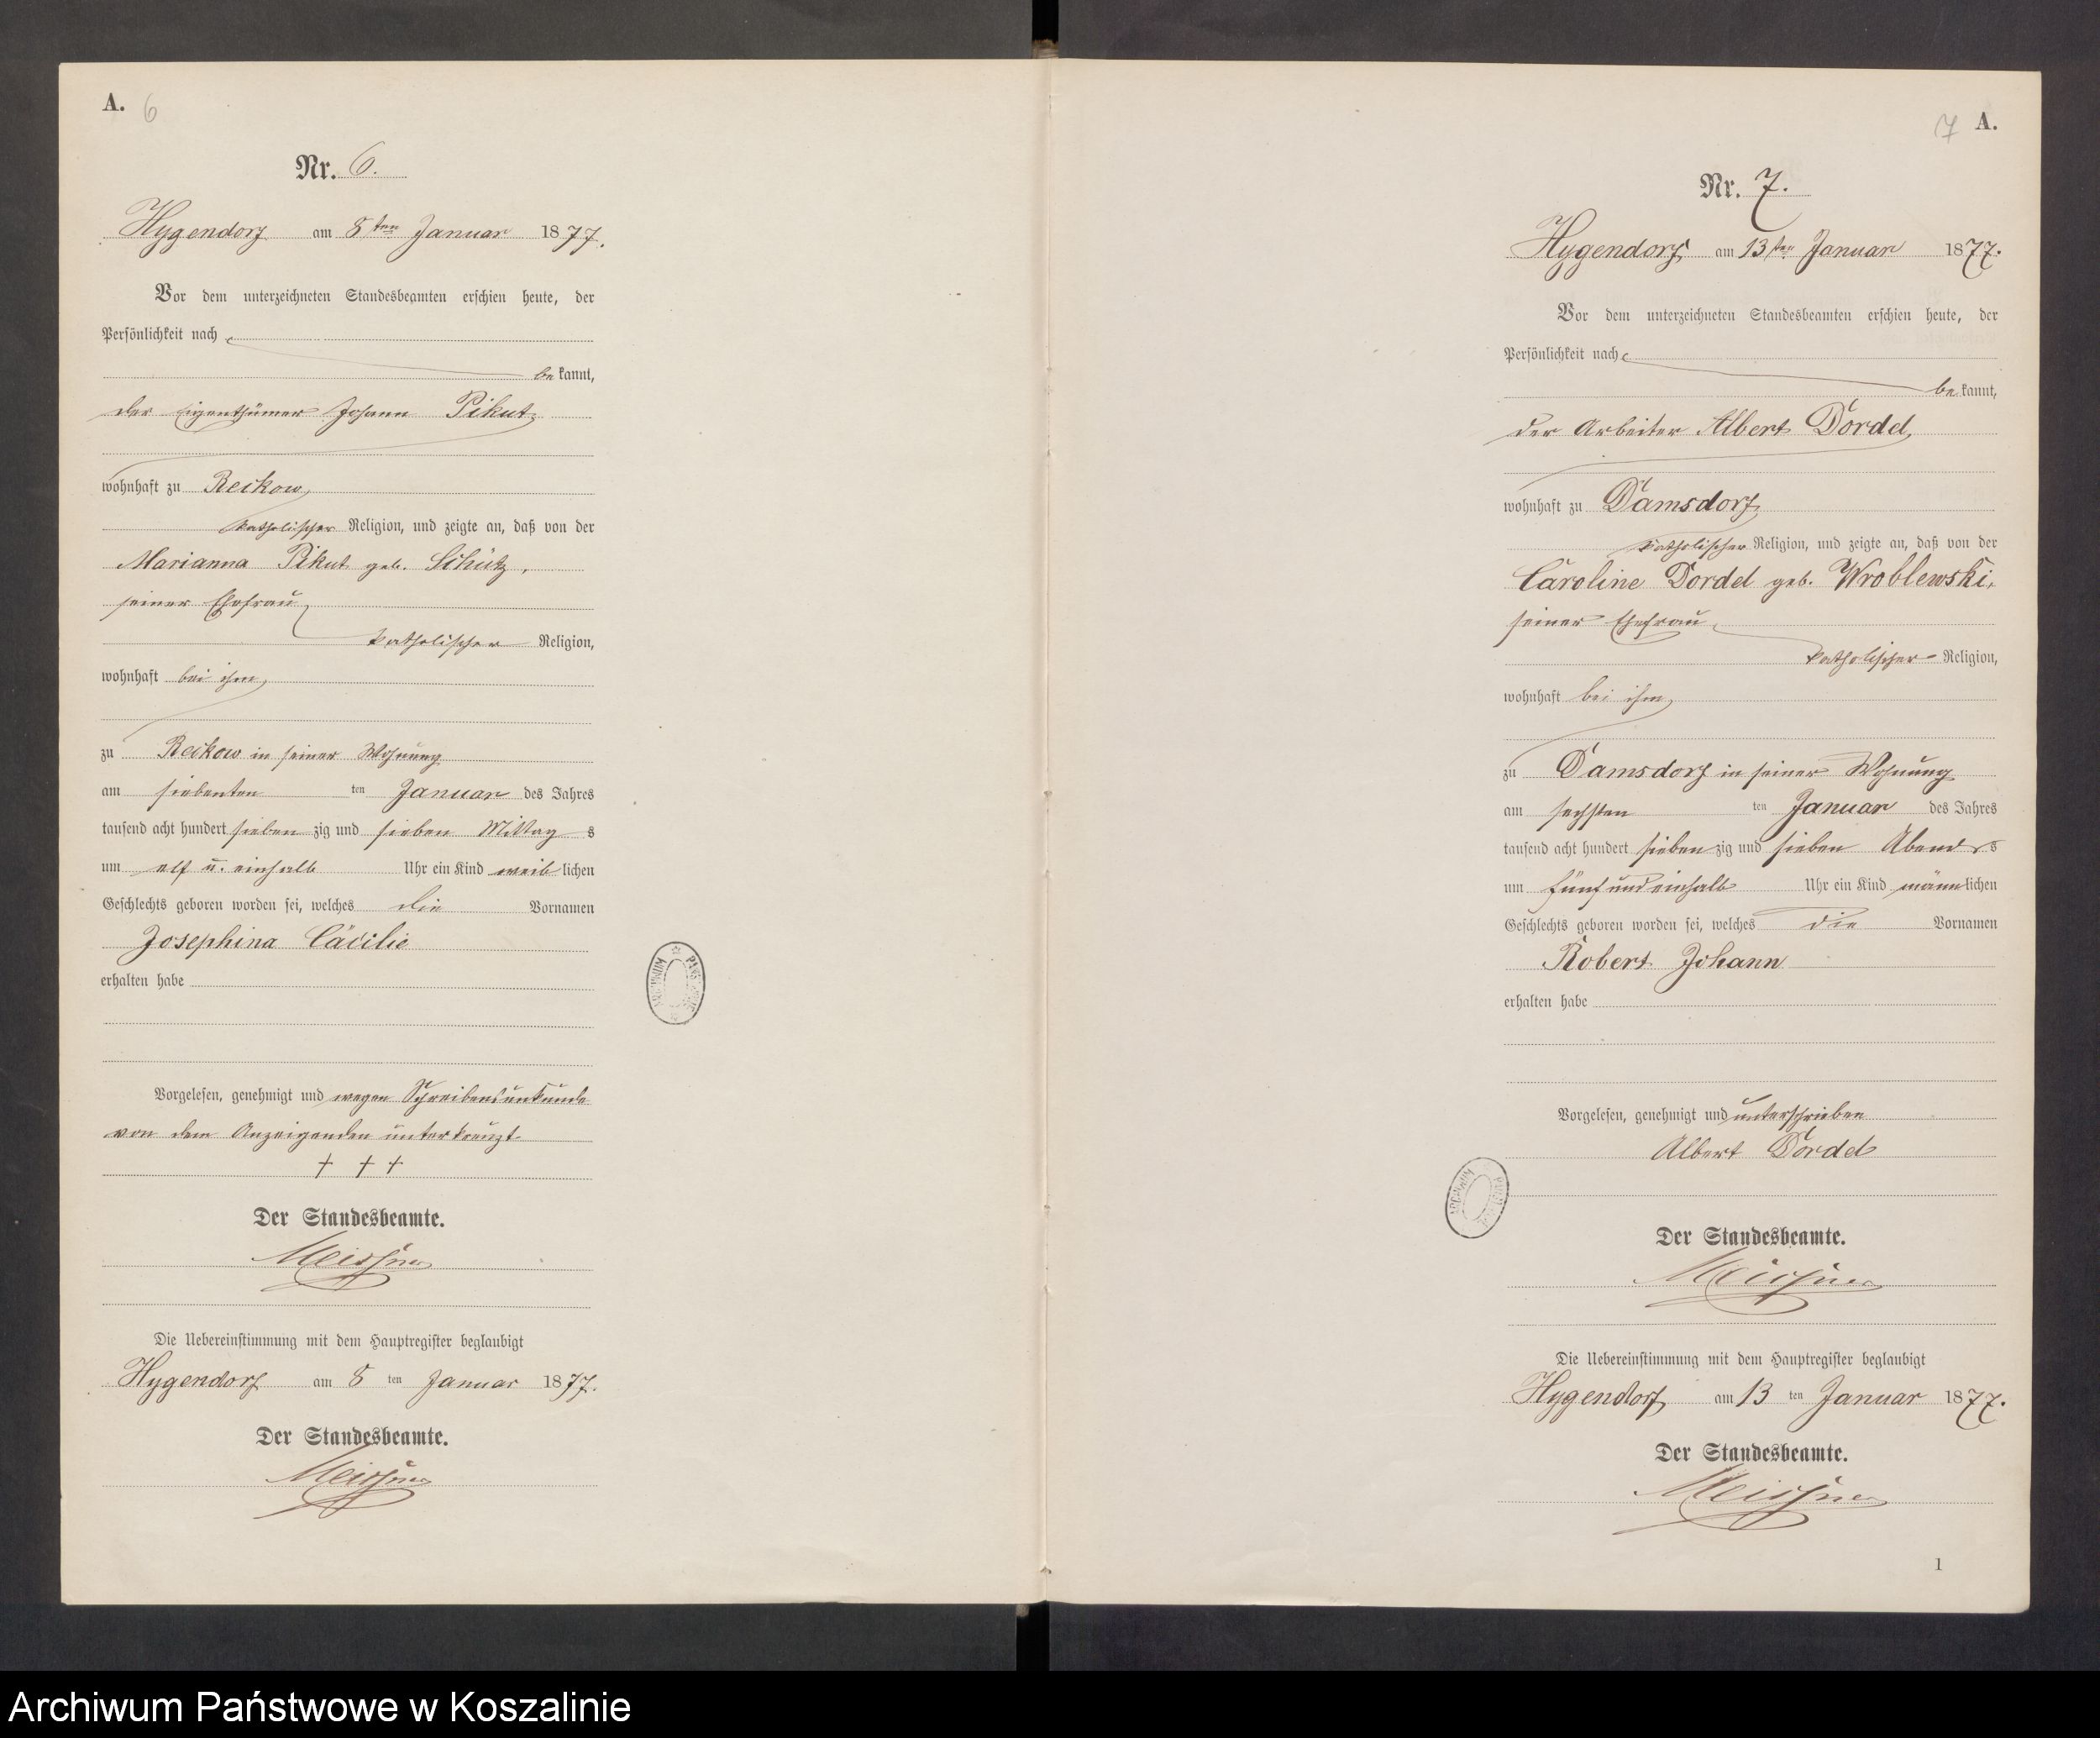 A. 6
Nr. 6.
Hygendorf am 8ten Januar 1877.
Vor dem unterzeichneten Standesbeamten erschien heute, der
Persönlichkeit nach
bekannt,
der Eigenthümer Johann Pikut,
wohnhaft zu Reckow,
katholischer Religion, und zeigte an, daß von der
Marianna Pikut geb. Schütz,
seiner Ehefrau,
katholischer Religion,
wohnhaft bei ihm,
zu Reckow in seiner Wohnung
am siebenten ten Januar des Jahres
tausend acht hundert siebenzig und sieben Mittags
um elf u. einhalb Uhr ein Kind weiblichen
Geschlechts geboren worden sei, welches die Vornamen
Josephina Cäcilie
erhalten habe
Vorgelesen, genehmigt und wegen Schreibensunkunde
von dem Anzeigenden unterkreuzt
† † †
Der Standesbeamte.
Meissner
Die Uebereinstimmung mit dem Hauptregister beglaubigt
Hygendorf am 8 ten Januar 1877.
Der Standesbeamte.
Meissner
ARCHIWUM PAŃSTWOWE
7 A.
Nr. 7.
Hygendorf am 13ten Januar 1877.
Vor dem unterzeichneten Standesbeamten erschien heute, der
Persönlichkeit nach
bekannt,
der Arbeiter Albert Dordel,
wohnhaft zu Damsdorf,
katholischer Religion, und zeigte an, daß von der
Caroline Dordel geb. Wroblewski,
seiner Ehefrau,
katholischer Religion,
wohnhaft bei ihm,
zu Damsdorf in seiner Wohnung
am sechsten ten Januar des Jahres
tausend acht hundert siebenzig und sieben Abends
um fünf und einhalb Uhr ein Kind männlichen
Geschlechts geboren worden sei, welches die Vornamen
Robert Johann
erhalten habe
Vorgelesen, genehmigt und unterschrieben
Albert Dordel
Der Standesbeamte.
Meissner
Die Uebereinstimmung mit dem Hauptregister beglaubigt
Hygendorf am 13 ten Januar 1877.
Der Standesbeamte.
Meissner
1
ARCHIWUM PAŃSTWOWE
Archiwum Państwowe w Koszalinie